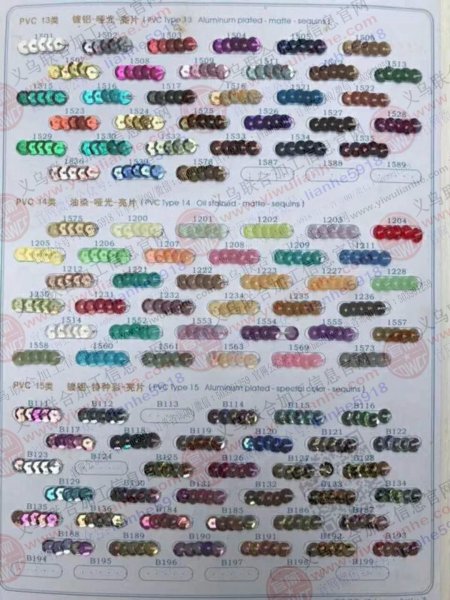 PVC 13类 镀铝-哑光-亮片 ( PVC Type 13 Aluminum plated - matte - sequins )
1501 1502 1503 1504 1505 1506
1507 1508 1509 1511 1512 1513
1515 1516 1517 1518 1521 1522
1523 1524 1525 1526 1527 1528
1529 1530 1532 1533 1534 1535
1536 1539 1578 1587 1588 1589
PVC 14类 油染-哑光-亮片 ( PVC Type 14 Oil stained - matte - sequins )
1575 1200 1201 1202 1203 1204
1205 1206 1207 1208 1209 1211
1212 1221 1222 1223 1227 1228
1231 1232 1234
1514 1552 1553 1554 1555 1557
1558 1560 1561 1563 1569 1573
PVC 15类 镀铝-特种彩-亮片 ( PVC Type 15 Aluminum plated - special color - sequins )
B111 B112 B113 B114 B115 B116
B117 B118 B119 B120 B121 B122
B123 B124 B125 B126 B127 B128
B129 B130 B131 B132 B133 B134
B135 B136 B184 B185 B186 B187
B188 B189 B190 B191 B192 B193
B194 B195 B196 B197 B198 B199
义乌联合加工信息官网
www.yiwulianhe.com
lianhe5918